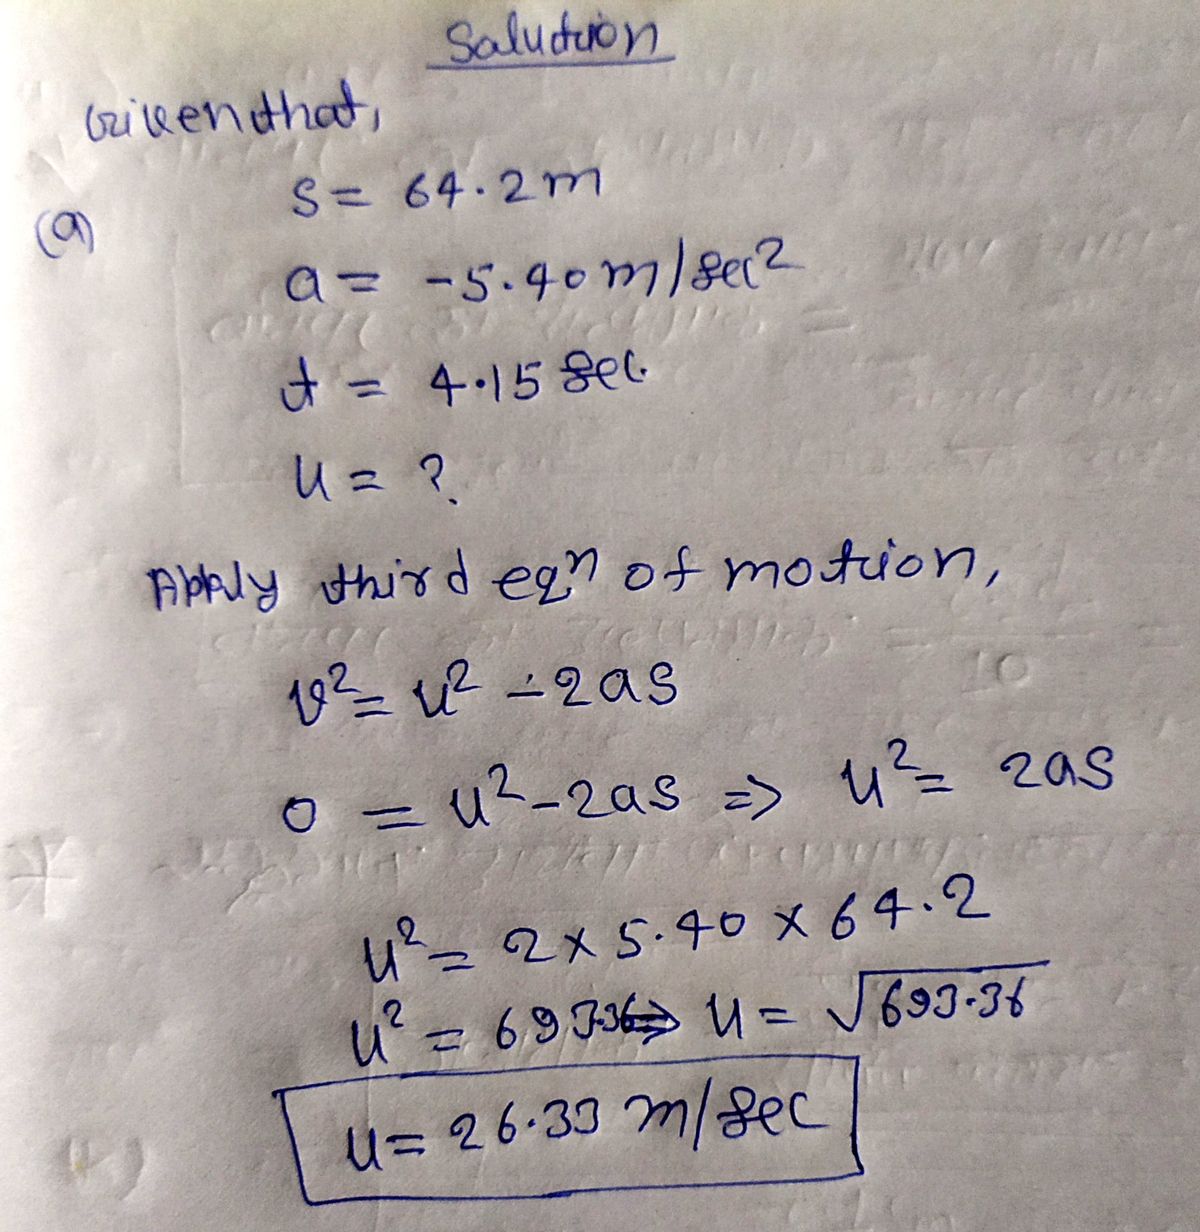 Solution
Given that,
(a)
s = 64.2 m
a = -5.40 m/sec2
t = 4.15 sec.
u = ?
Apply third eqn of motion,
v2 = u2 - 2as
0 = u2 - 2as => u2 = 2as
u2 = 2 x 5.40 x 64.2
u2 = 693.36 => u = √693.36
u = 26.33 m/sec